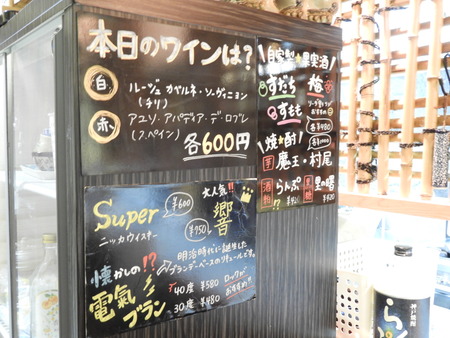 本日のワインは?
白 ルージュ カベルネ・ソーヴィニヨン
(チリ)
赤 アユソ・アバディア・デ・ロブレ
(スペイン)
各600円
自家製 果実酒
すだち 梅
すもも
各¥480
焼酎!
芋 魔王・村尾
酒粕 らんぷ
黒糖 里の曙
¥420
Super ¥600
ニッカウイスキー
大人気!!
響
¥750
懐かしの!?
電氣ブラン
明治時代に誕生した
ブランデーベースのリキュールです。
40度 ¥580
30度 ¥480
ロックが
おすすめ!!
神戸焼酎
らんぷ